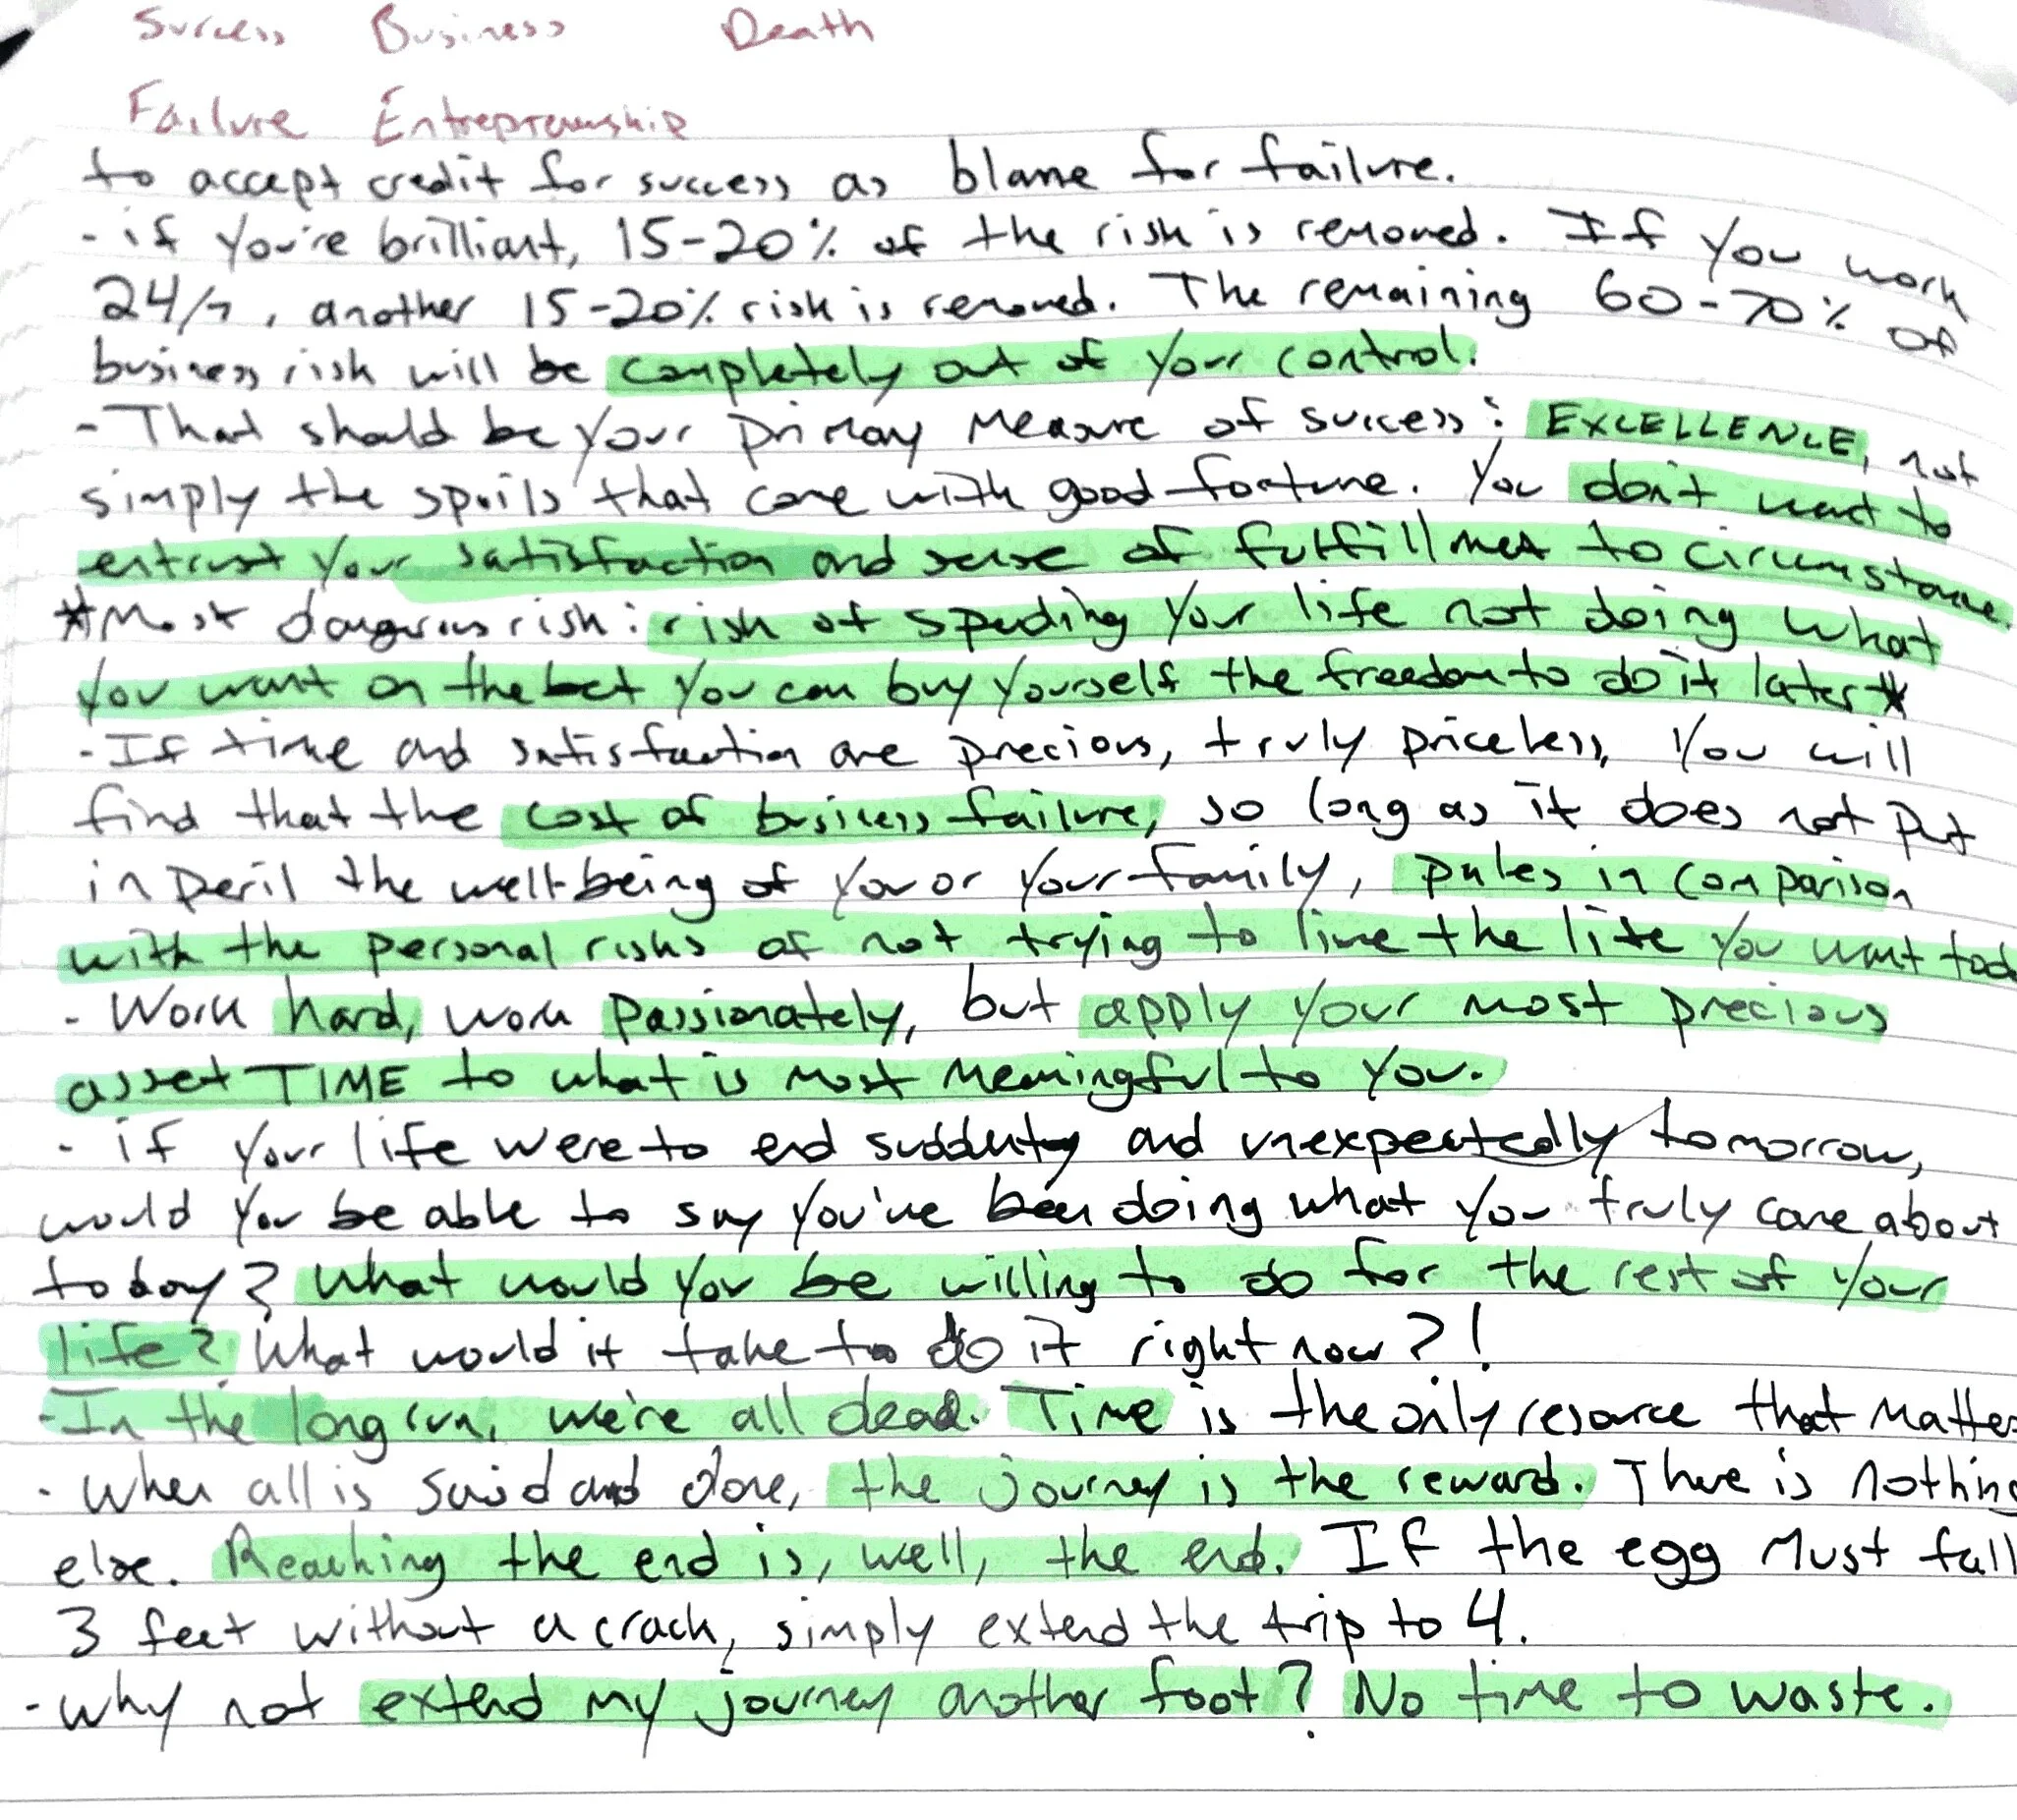 Success Business Death
Failure Entrepreneurship
to accept credit for success as blame for failure.
- if you're brilliant, 15-20% of the risk is removed. If you work
24/7, another 15-20% risk is removed. The remaining 60-70% of
business risk will be completely out of your control.
- That should be your primary measure of success: EXCELLENCE, not
simply the spoils that come with good fortune. You don't want to
entrust your satisfaction and sense of fulfillment to circumstance.
*Most dangerous risk: risk of spending your life not doing what
you want on the bet you can buy yourself the freedom to do it later*
- If time and satisfaction are precious, truly priceless, you will
find that the cost of business failure, so long as it does not put
in peril the well-being of you or your family, pales in comparison
with the personal risks of not trying to live the life you want tod
- Work hard, work passionately, but apply your most precious
asset TIME to what is most meaningful to you.
- if your life were to end suddenly and unexpectedly tomorrow,
would you be able to say you've been doing what you truly care about
today? What would you be willing to do for the rest of your
life? What would it take to do it right now?!
- In the long run, we're all dead. Time is the only resource that matter
- When all is said and done, the journey is the reward. There is nothing
else. Reaching the end is, well, the end. If the egg must fall
3 feet without a crack, simply extend the trip to 4.
- why not extend my journey another foot? No time to waste.